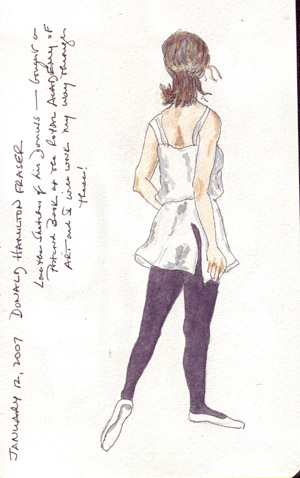 JANUARY 12, 2007 DONALD HAMILTON FRASER
Love the sketches of his Dancers — bought a
Postcard Book at the Royal Academy of
Art and I will work my way through
these!